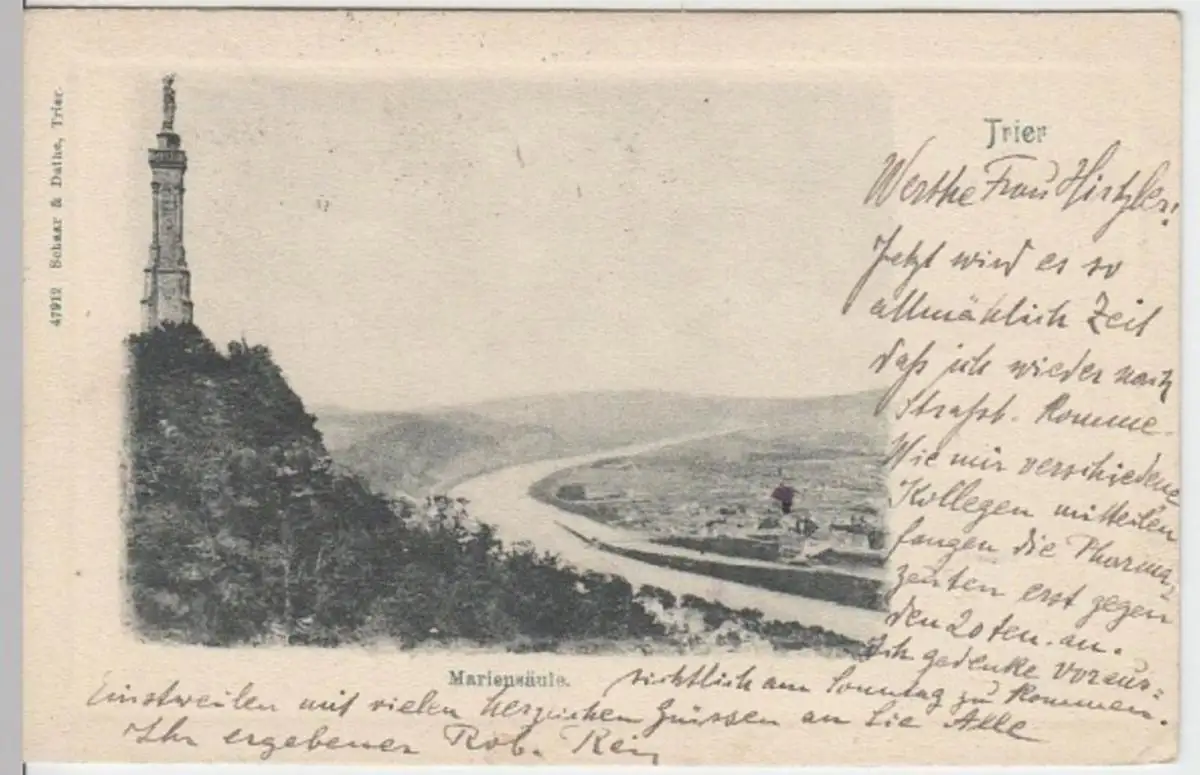 47912 Schaar & Dathe, Trier.
Trier
Werthe Frau Hirtzler!
Jetzt wird es so
allmählich Zeit
daß ich wieder nach
Straßb. komme.
Wie mir verschiedene
Kollegen mitteilen
fangen die Pharma-
zeuten erst gegen
den 20ten. an.
Ich gedenke voraus-
sichtlich am Sonntag zu kommen.
Mariensäule.
Einstweilen mit vielen herzlichen Grüssen an Sie Alle
Ihr ergebener Rob.